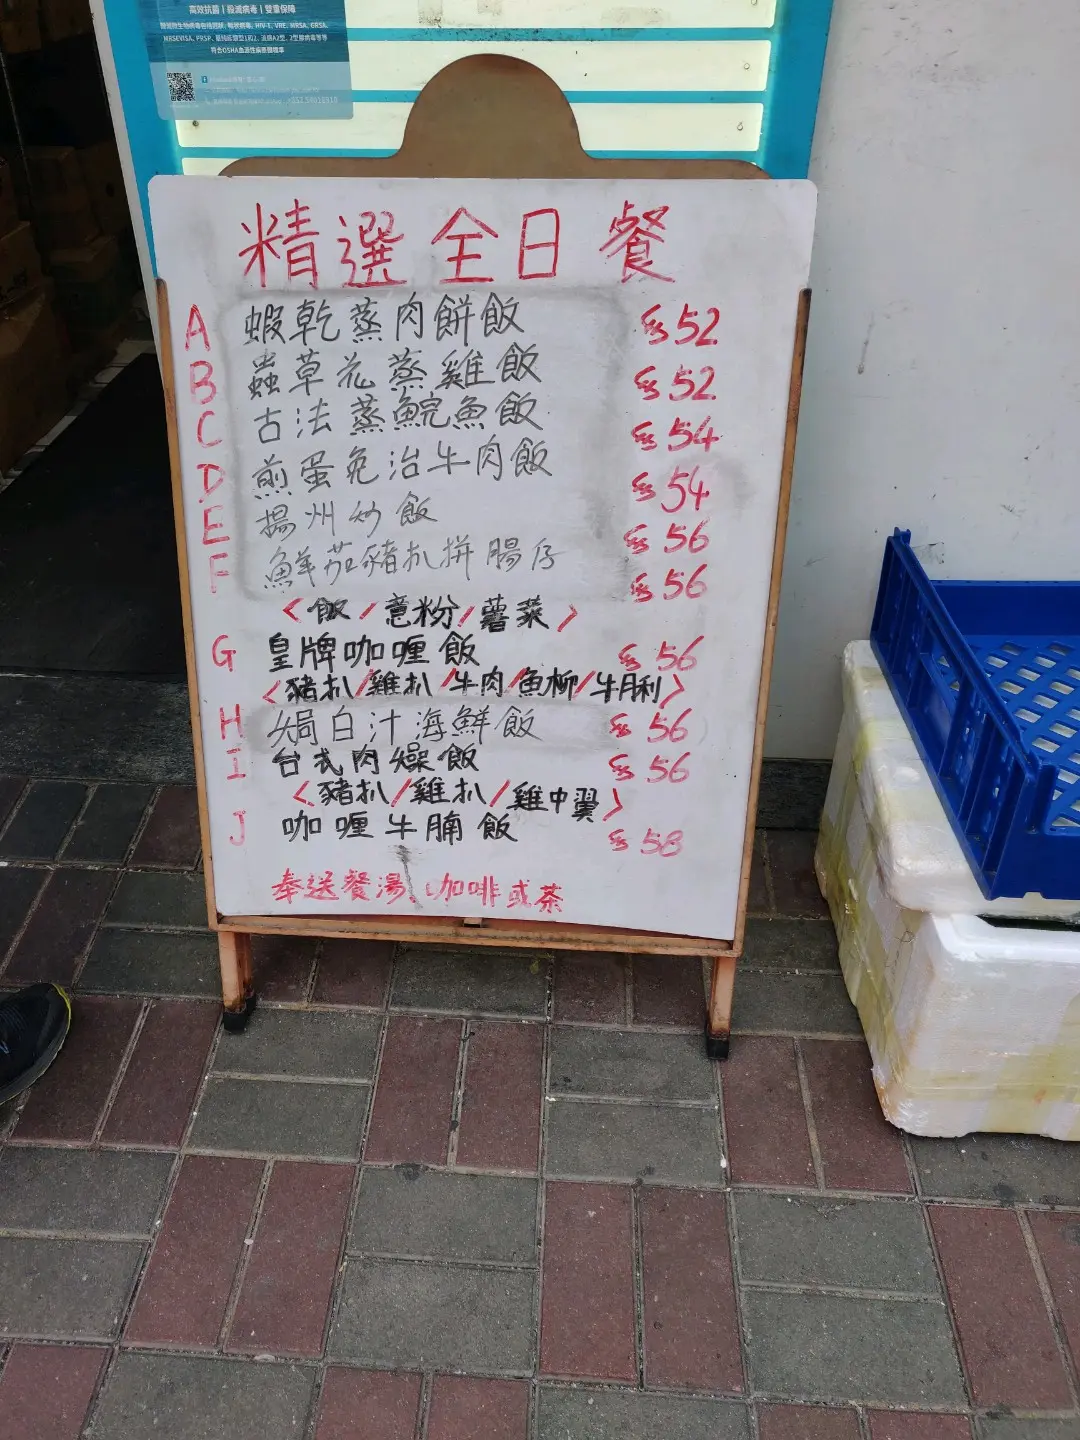 高效抗菌 | 殺滅病毒 | 雙重保障
符合OSHA血源性病原體標準
精選全日餐
A 蝦乾蒸肉餅飯 $52
B 蟲草花蒸雞飯 $52
C 古法蒸鯇魚飯 $54
D 煎蛋免治牛肉飯 $54
E 揚州炒飯 $56
F 鮮茄豬扒拼腸仔 $56
<飯/意粉/薯菜>
G 皇牌咖喱飯 $56
<豬扒/雞扒/牛肉/魚柳/牛脷>
H 焗白汁海鮮飯 $56
I 台式肉燥飯 $56
<豬扒/雞扒/雞中翼>
J 咖喱牛腩飯 $58
奉送餐湯、咖啡或茶